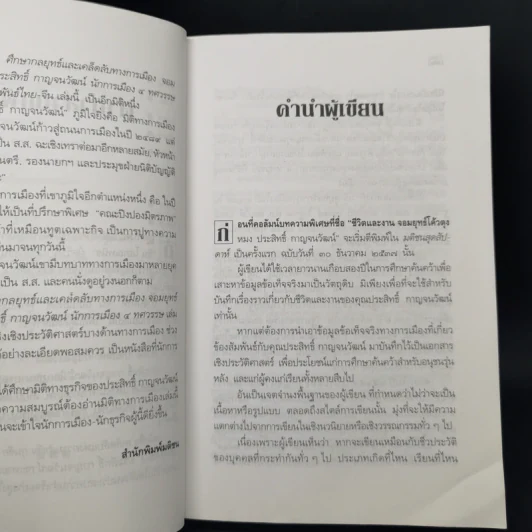 ศึกษากลยุทธ์และเคล็ดลับทางการเมือง จอม
ประสิทธิ์ กาญจนวัฒน์ นักการเมือง ๔ ทศวรรษ
พันธ์ไทย-จีน เล่มนี้ เป็นอีกมิติหนึ่ง
กาญจนวัฒน์" ภูมิใจยิ่งคือ มิติทางการเมือง
จนวัฒน์ก้าวสู่ถนนการเมืองในปี ๒๔๙๑ แต่
เป็น ส.ส. ฉะเชิงเทราต่อมาอีกหลายสมัย หัวหน้า
นตรี, รองนายกฯ และประมุขฝ่ายนิติบัญญัติ
การเมืองที่เขาภูมิใจอีกตำแหน่งหนึ่ง คือ ในปี
ให้เป็นที่ปรึกษาพิเศษ "คณะปิงปองมิตรภาพ"
าที่เหมือนทูตเฉพาะกิจ เป็นการปูทางความ
นมาจนทุกวันนี้
จนวัฒน์เขามีบทบาททางการเมืองมาหลายยุค
เป็น ส.ส. และคนนั่งดูอยู่วงนอกก็ตาม
ากลยุทธ์และเคล็ดลับทางการเมือง จอมยุทธ์
กาญจนวัฒน์ นักการเมือง ๔ ทศวรรษ เล่ม
เชิงประวัติศาสตร์บางด้านทางการเมือง ช่วง
อย่างละเอียดพอสมควร เป็นหนังสือที่นักการ
ได้ศึกษามิติทางธุรกิจของประสิทธิ์ กาญจนวัฒน์
ความสมบูรณ์ต้องอ่านมิติทางการเมืองเล่มนี้
จะเข้าใจนักการเมือง-นักธุรกิจผู้นี้ดียิ่งขึ้น
สำนักพิมพ์มติชน
คำนำผู้เขียน
ก่อนที่คอลัมน์บทความพิเศษที่ชื่อ "ชีวิตและงาน จอมยุทธ์โค้วตุง
หมง ประสิทธิ์ กาญจนวัฒน์" จะเริ่มตีพิมพ์ใน มติชนสุดสัป-
ดาห์ เป็นครั้งแรก ฉบับวันที่ ๓๐ ธันวาคม ๒๕๓๗ นั้น
ผู้เขียนได้ใช้เวลายาวนานเกือบสองปีในการศึกษาค้นคว้าเพื่อ
เสาะหาข้อมูลข้อเท็จจริงมาเป็นวัตถุดิบ มิเพียงเพื่อที่จะใช้สำหรับ
บันทึกเรื่องราวเกี่ยวกับชีวิตและงานของคุณประสิทธิ์ กาญจนวัฒน์
เท่านั้น
หากแต่ต้องการนำเอาข้อมูลข้อเท็จจริงทางการเมืองที่เกี่ยว
ข้องสัมพันธ์กับคุณประสิทธิ์ กาญจนวัฒน์ มาบันทึกไว้เป็นเอกสาร
เชิงประวัติศาสตร์ เพื่อประโยชน์แก่การศึกษาค้นคว้าสำหรับอนุชนรุ่น
หลัง และแก่ผู้คงแก่เรียนทั้งหลายสืบไป
อันเป็นเจตจำนงพื้นฐานของผู้เขียน ที่กำหนดว่าไม่ว่าจะเป็น
เนื้อหาหรือรูปแบบ ตลอดถึงสไตล์การเขียนนั้น มุ่งที่จะให้มีความ
แตกต่างไปจากการเขียนในเชิงนวนิยายหรือเชิงวรรณกรรมทั่ว ๆ ไป
เนื่องเพราะผู้เขียนเห็นว่า หากจะเขียนเหมือนกับชีวประวัติ
ของบุคคลที่กระทำกันทั่ว ๆ ไป ประเภทเกิดที่ไหน เรียนที่ไหน